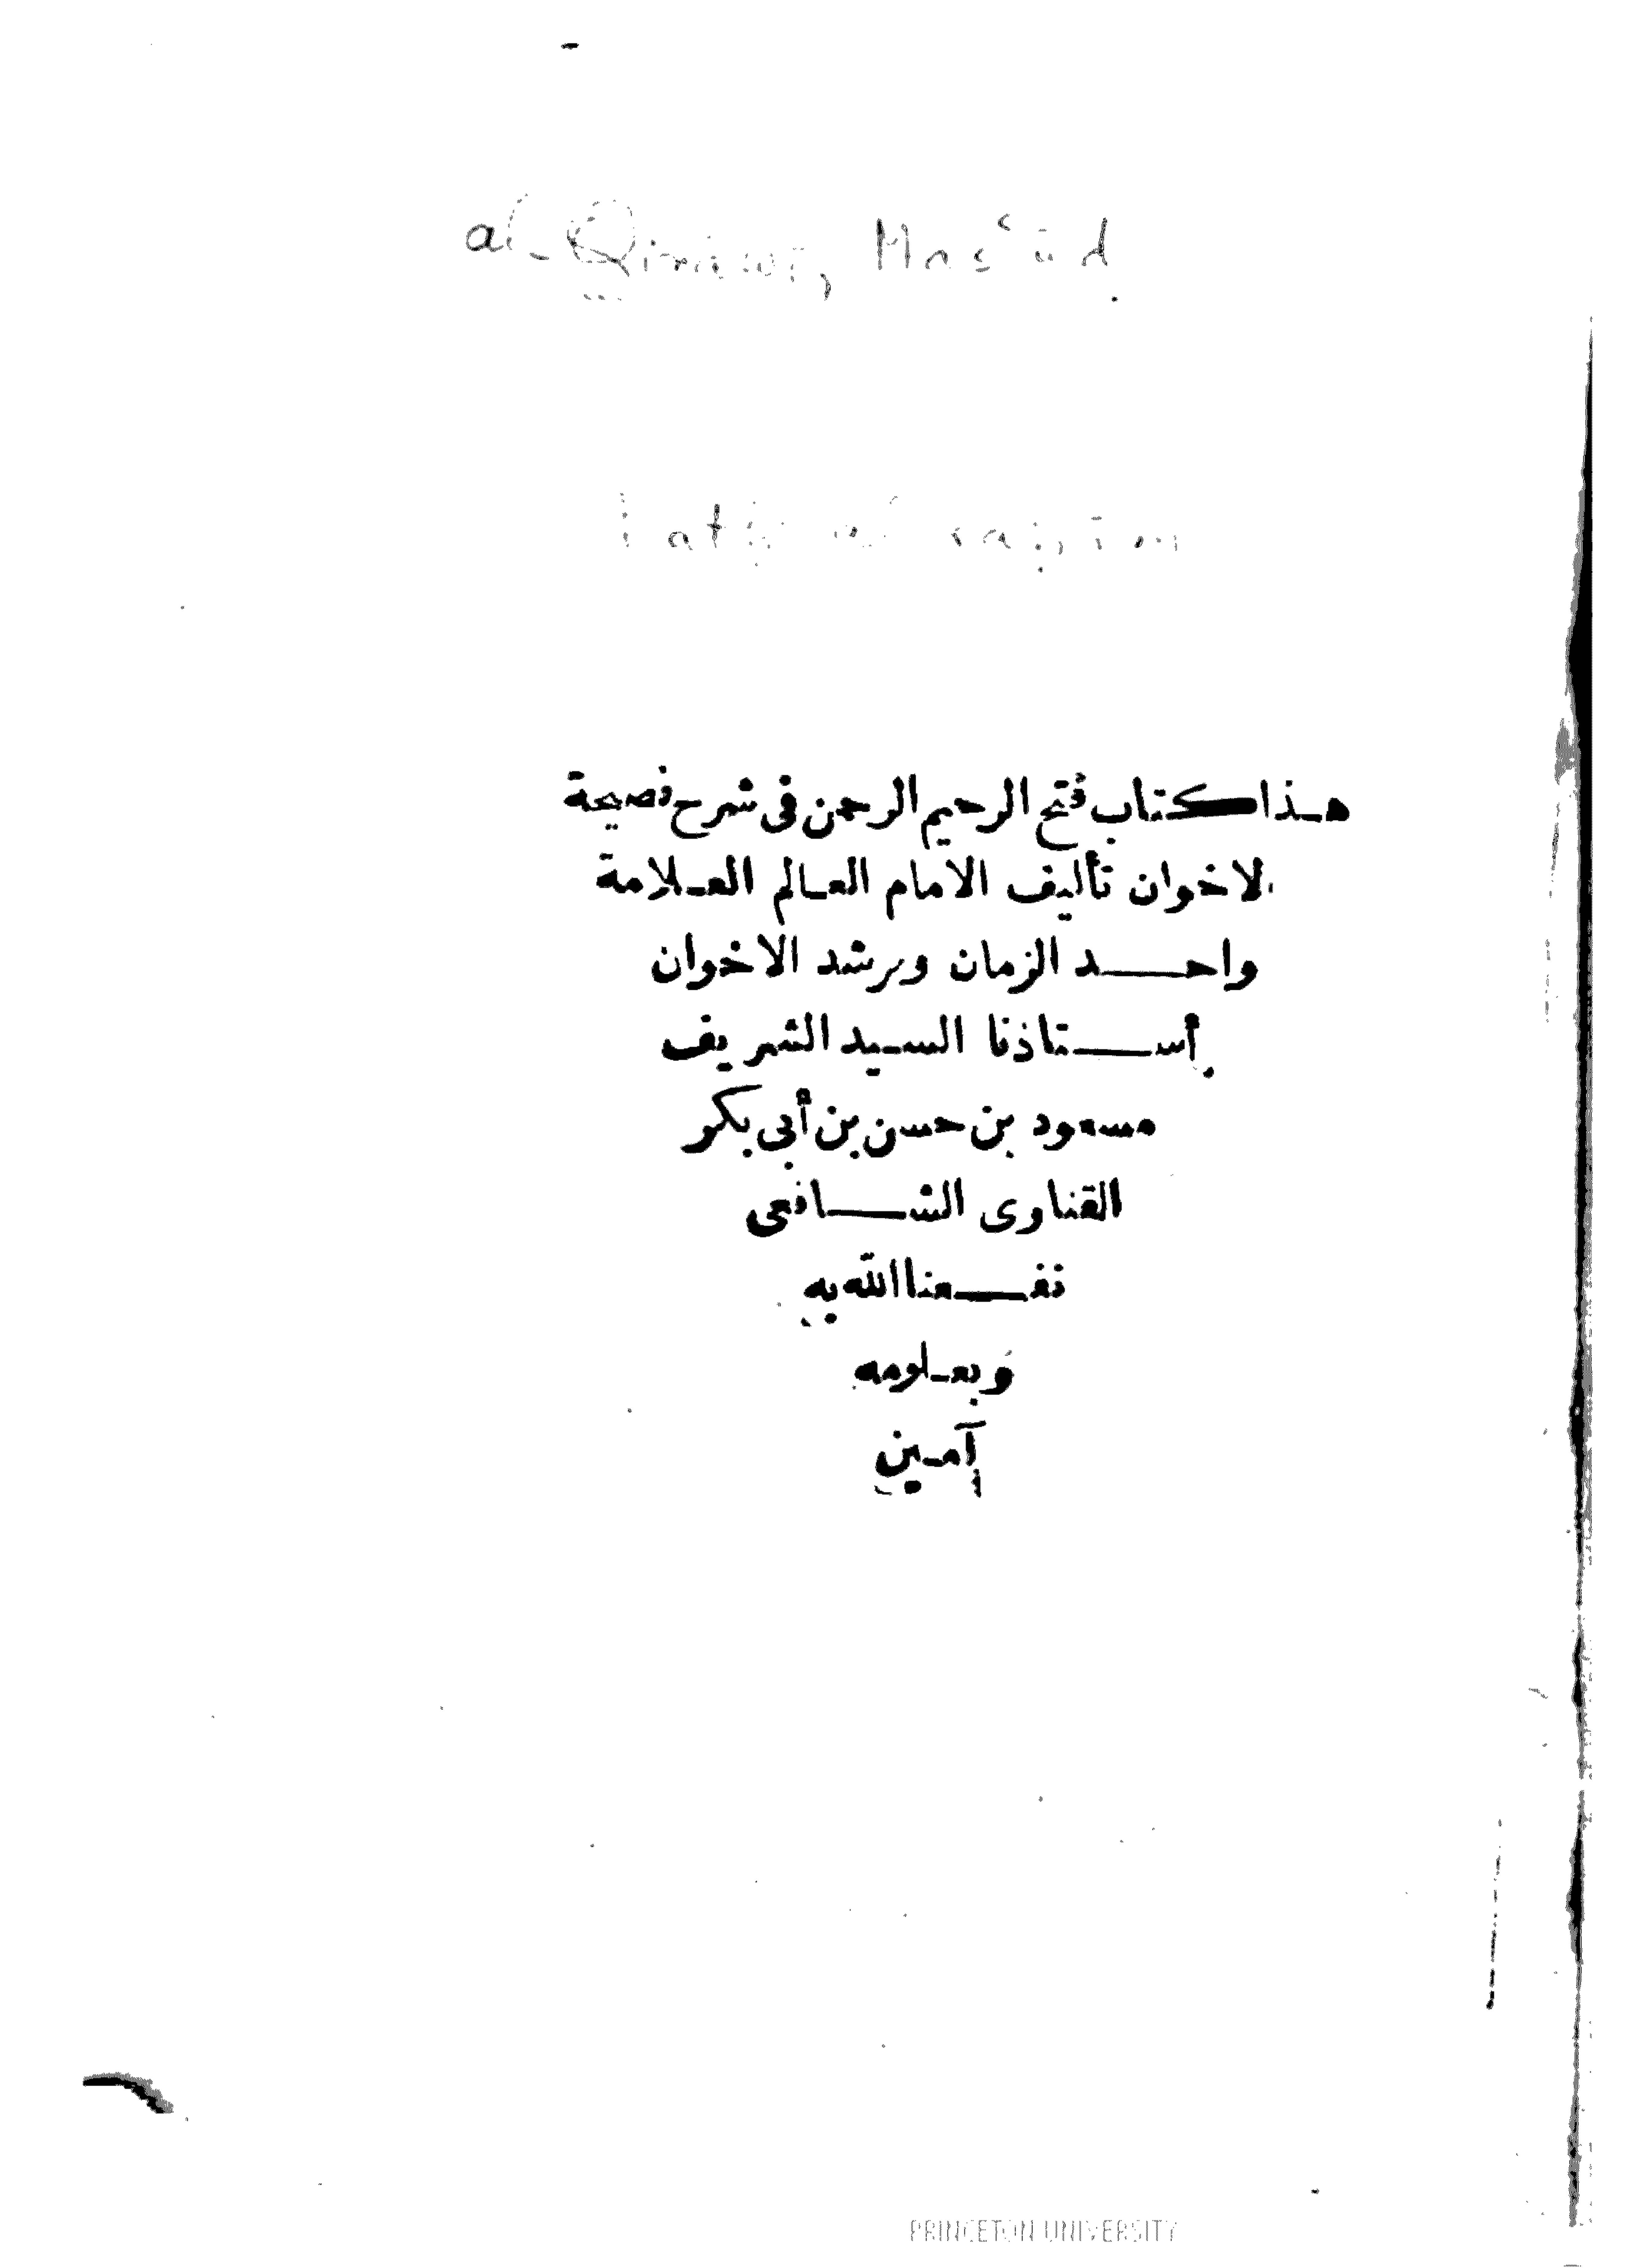 al-Qināwī, Mas‘ūd.
Fatḥ al-raḥīm
هذا كتاب فتح الرحيم الرحمن فى شرح نصيحة
الاخوان تأليف الامام العالم العلامة
واحد الزمان ومرشد الاخوان
أستاذنا السيد الشريف
مسعود بن حسن بن أبي بكر
القناوى الشافعى
نفعنا الله به
وبعلومه
آمين
PRINCETON UNIVERSITY